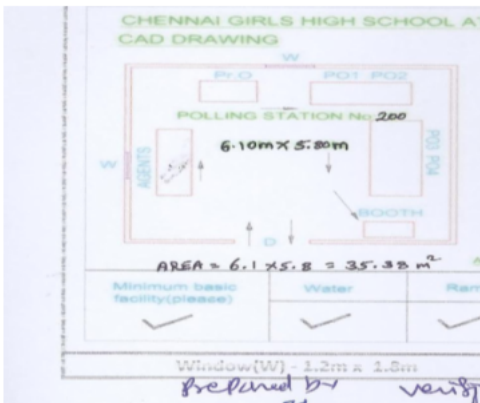 CHENNAI GIRLS HIGH SCHOOL AT
CAD DRAWING
W
Pr.O PO1 PO2
POLLING STATION No. 200
6.10m X 5.80m
W
AGENTS
PO3 PO4
BOOTH
D
AREA = 6.1 X 5.8 = 35.38 m²
Minimum basic
facility(please)
Water
Ram
Window(W) - 1.2m x 1.8m
Prepared by